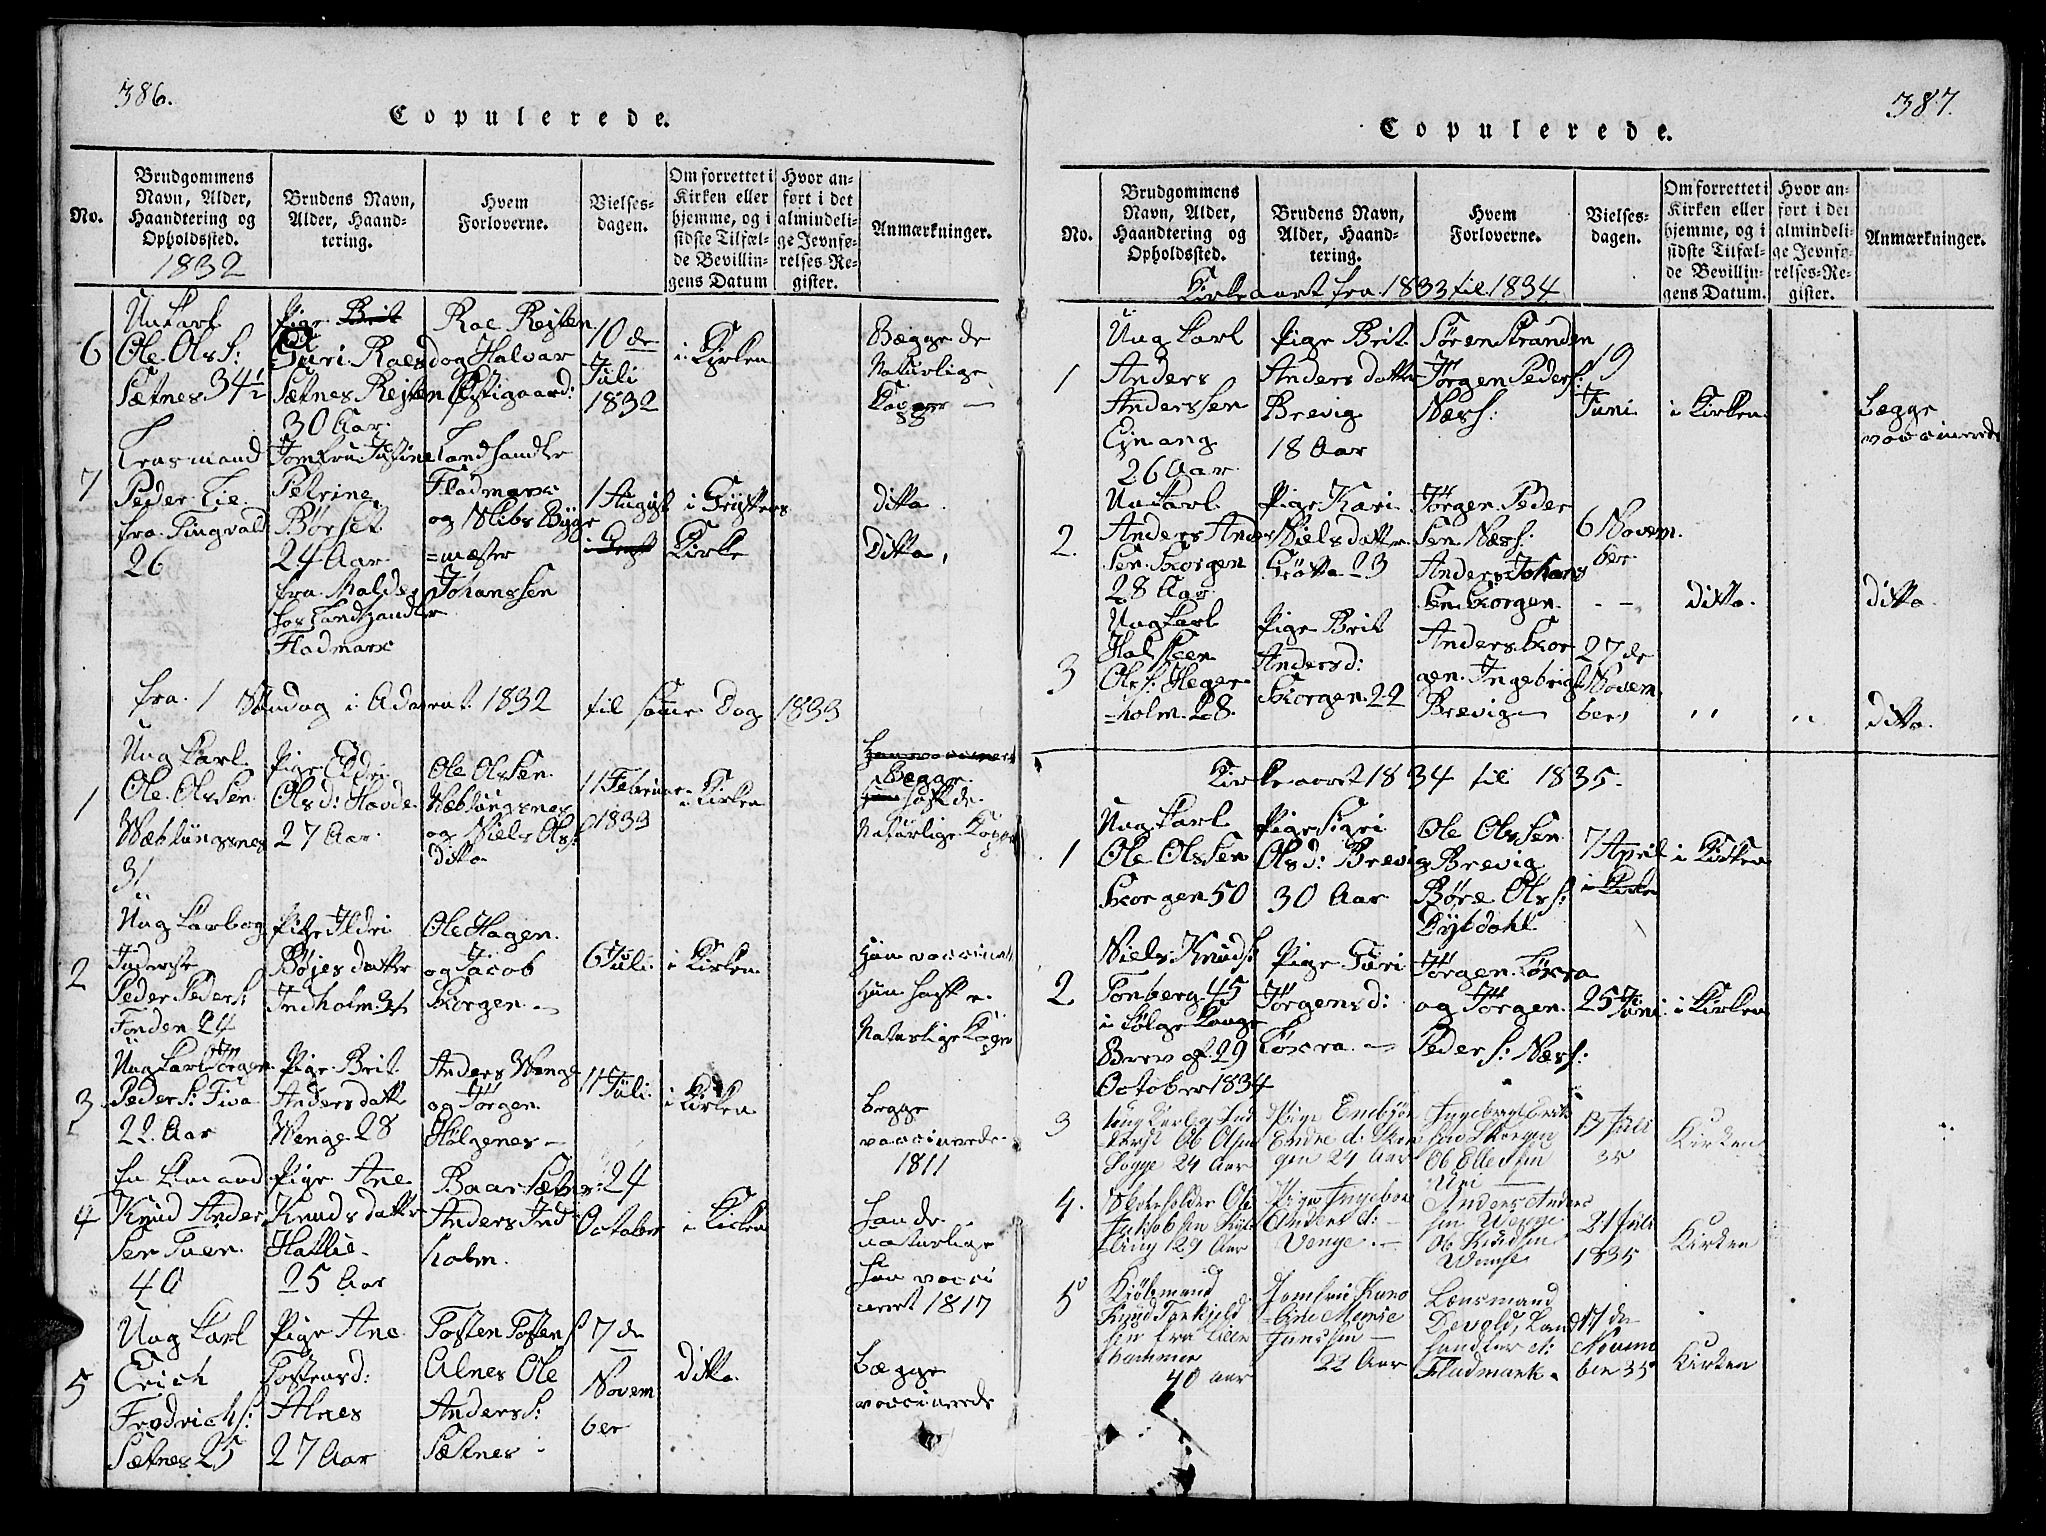 386.
Copulerede.
No.
Brudgommens
Navn, Alder,
Haandtering og
Opholdssted.
1832
Brudens Navn,
Alder, Haand-
tering.
Hvem
Forloverne.
Vielses-
dagen.
Om forrettet i
Kirken eller
hjemme, og i
sidste Tilfæl-
de Bevillin-
gens Datum
Hvor an-
ført i det
almindeli-
ge Jevnfø-
relses-Re-
gister.
Anmærkninger.
6
Ole Ols:
Sætnes 34½
Pige Brit
Guri Raesd
Sætnes Rejten
30 Aar
Roe Rejten
og Halvar
10 de
Juli
1832
i Kirken
Begge de
Naturlige
Kopper
7
Lensmand
Peder Lie
fra Tingvold
26
Jomfru Justine
Petrine
Børset
24 Aar
fra Molde
hos Landhandler
Fladmark
Landhandler
Fladmark
og Skibs Byg
=mester
Johanssen
1 August
i Grytens
Kirke
ditto
Ditto,
fra 1 Søndag i Advent 1832 til samme Dag 1833
1
Ung Karl
Ole Olssen
Næblungsnes
31
Pige Eldri
Olsd: Hovde
27 Aar
Ole Olssen
Næblungsnes
og Niels Ols:
ditto
11 Februar
1833
i Kirken
Begge
hafde
Naturlige Kopper
2
Ung Karl og
Inderste
Peder Peders:
Fonden 24
Pige Ildri
Bøjes datter
Indholm 31
Ole Hagen
og Jacob
Korgen
6 Juli
i Kirken
Han vaccineret
Hun hafde
Naturlige Kopper
3
Ung Karl Jørgen
Peders: Fiva
22 Aar
Pige Brit
Anders datter
Wenge 28
Anders Wenge
og Jørgen
Halgenes
11 Juli
i Kirken
begge
vaccinerede
1811
4
Enkemand
Knud Ander
sen Tuen
40
Pige Ane
Knuds datter
Hallie
25 Aar
Baar Sætnes:
Anders Ind
holm
24
October
i Kirken
naturlige
han vacci
neret 1817
5
Ung Karl
Erich
Fredrichs:
Sætnes 25
Pige Ane
Tostensd:
Alnes
27 Aar
Tosten Tostens
Alnes Ole
Anders:
Sætnes
7 de
Novem
ber
ditto
begge
vaccinerede
387.
Copulerede.
No.
Brudgommens
Navn, Alder,
Haandtering og
Opholdssted.
Brudens Navn,
Alder, Haand-
tering.
Hvem
Forloverne.
Vielses-
dagen.
Om forrettet i
Kirken eller
hjemme, og i
sidste Tilfæl-
de Bevillin-
gens Datum.
Hvor an-
ført i det
almindeli-
ge Jevnfø-
relses-Re-
gister.
Anmærkninger.
Kirkeaaret fra 1833 til 1834
1
Ung Karl
Anders
Anderssen
Einang
26 Aar
Pige Brit
Anders datter
Brevig
18 Aar
Søren Stranden
Jørgen Peders:
Næss:
19
Juni
i Kirken
begge
vaccinerede
2.
Ung Karl
Anders Ander
sen Korgen
28 Aar
Pige Kari
Niels datter
Grøtta 23
Jørgen Peder
sen Næss:
Anders Johans
sen Korgen
6 Novem
ber
ditto
ditto
3
Ung Karl
Halsteen
Ols: Heger
=holm 28
Pige Brit
Andersd:
Korgen 22
Anders Kor
gen Ingebrigt
Brevig
27 de
Novem
ber
" "
ditto
Kirkeaaret 1834 til 1835.
1
Ung Karl
Ole Olssen
Korgen 50
Pige Sigri
Olsd: Brevig
30 Aar
Ole Olssen
Brevig
Børe Ols:
Dybdahl
7 April
i Kirken
i Kirken
2
Niels Knuds:
Tonberg 45
i følge Konge
Brev af 29
October 1834
Pige Guri
Jørgensd:
Loxra
Jørgen Loxra
og Jørgen
Peders: Næss:
25 Juni
i Kirken
3
Ung Karl og Ind
Sogge 24 Aar
Pige Embjør
Endre d: Skor
gen 24 Aar
13 Juli
35
Kirken
4.
29 Aar
Pige Ingebor
Anders d:
Venge
Anders Anders
sen Wenge
21 Juli
1835
Kirken
5
Kiøbmand
40 aar
Jomfru
22 Aar
Lensmand
Devold, Land
handler
Fladmark.
17 de
Novem
ber 35
Kirken